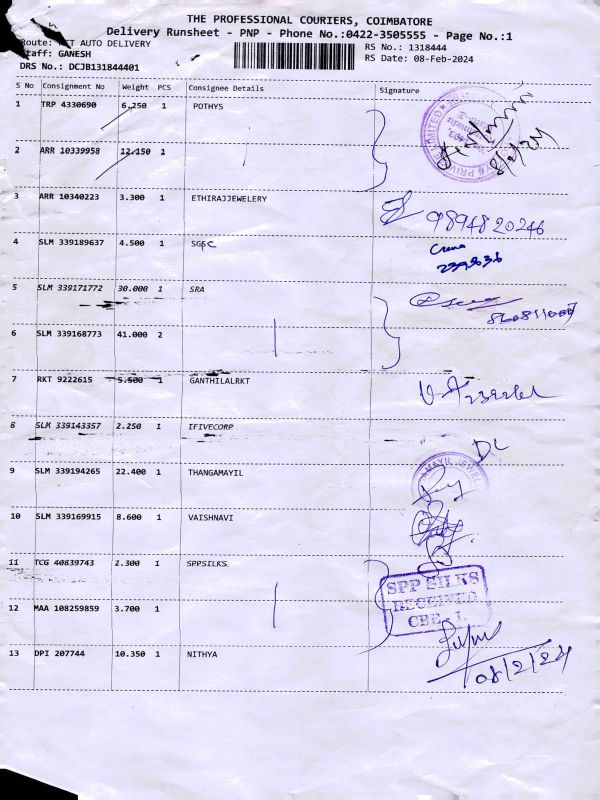 THE PROFESSIONAL COURIERS, COIMBATORE
Delivery Runsheet - PNP - Phone No.:0422-3505555 - Page No.:1
Route: AUTO DELIVERY
RS No.: 1318444
Staff: GANESH
RS Date: 08-Feb-2024
DRS No.: DCJB131844401
S No Consignment No Weight PCS Consignee Details Signature
1 TRP 4330690 6.250 1 POTHYS
2 ARR 10339958 12.150 1
8/2/24
3 ARR 10340223 3.300 1 ETHIRAJJEWELERY
9894820246
4 SLM 339189637 4.500 1 SGSC
5 SLM 339171772 30.000 1 SRA
6 SLM 339168773 41.000 2
7 RKT 9222615 5.500 1 GANTHILALRKT
8 SLM 339143357 2.250 1 IFIVECORP
9 SLM 339194265 22.400 1 THANGAMAYIL
10 SLM 339169915 8.600 1 VAISHNAVI
11 TCG 40839743 2.300 1 SPPSILKS
SPP SILKS
RECEIVED
CBE - 1.
12 MAA 108259859 3.700 1
13 DPI 207744 10.350 1 NITHYA
08/2/24